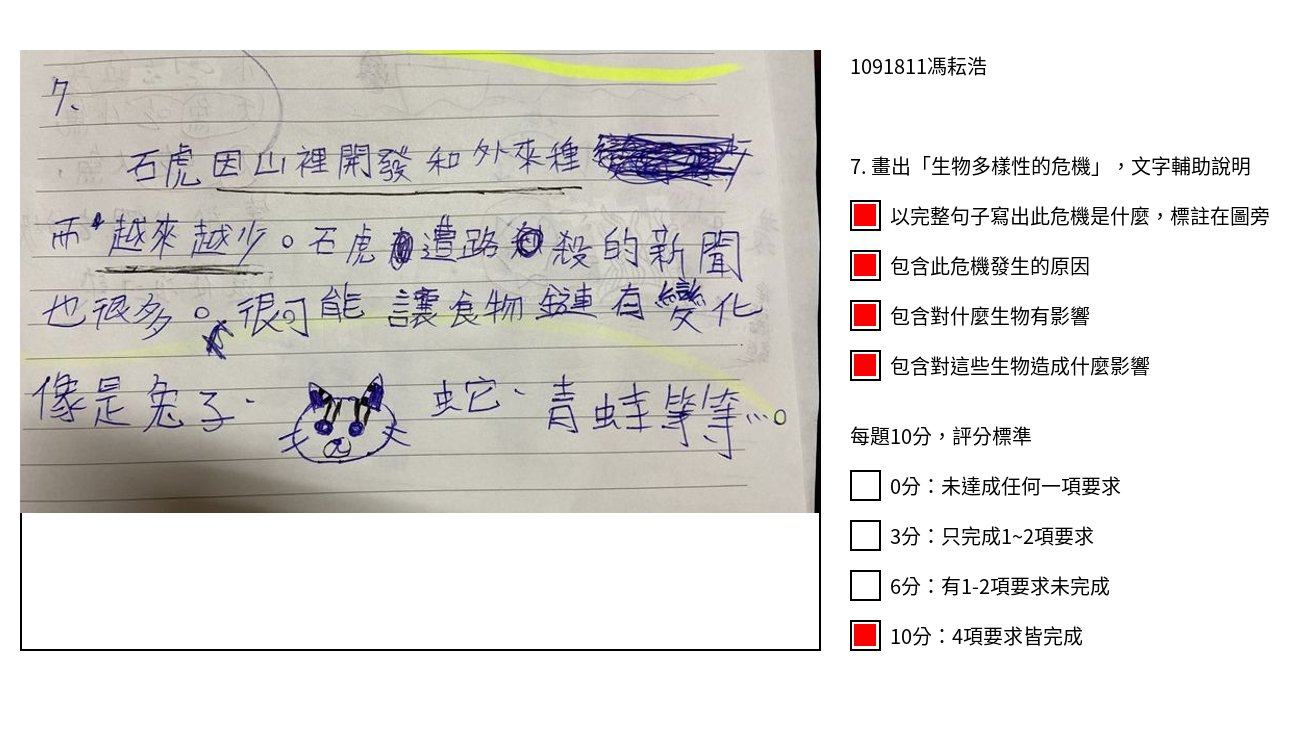 7、
石虎因山裡開發和外來種
而越來越少。石虎遭路殺的新聞
也很多。很可能讓食物鏈有變化
像是兔子、蛇、青蛙等等…。
1091811馮耘浩
7. 畫出「生物多樣性的危機」，文字輔助說明
以完整句子寫出此危機是什麼，標註在圖旁
包含此危機發生的原因
包含對什麼生物有影響
包含對這些生物造成什麼影響
每題10分，評分標準
0分：未達成任何一項要求
3分：只完成1~2項要求
6分：有1-2項要求未完成
10分：4項要求皆完成